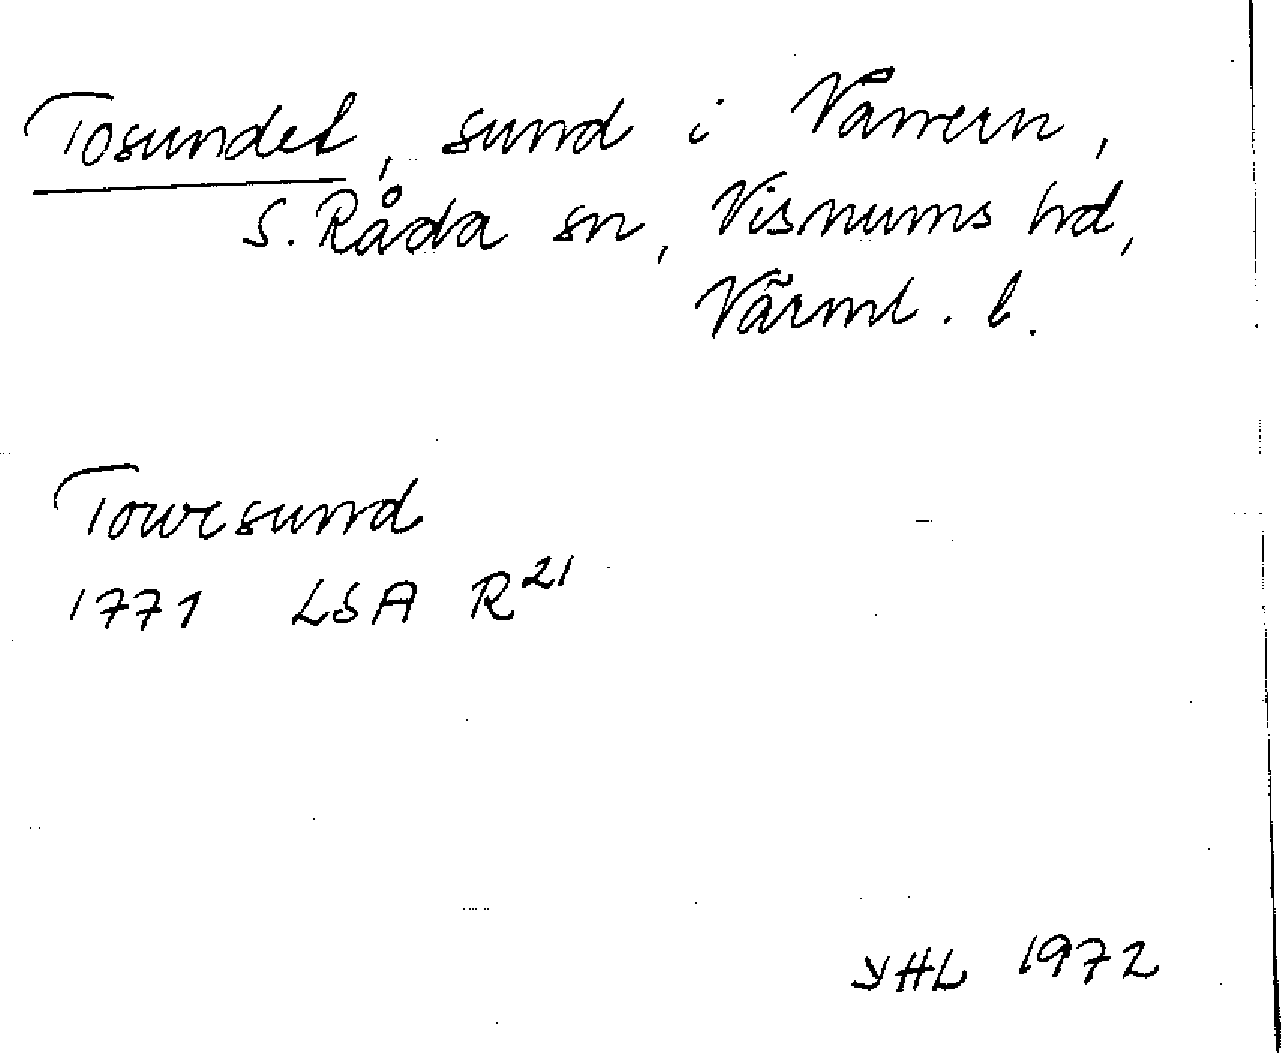 Tosundet, sund i Vänern,
S. Råda sn, Visnums hd,
Värml. l.
Towesund
1771 LSA R 21
YHL 1972